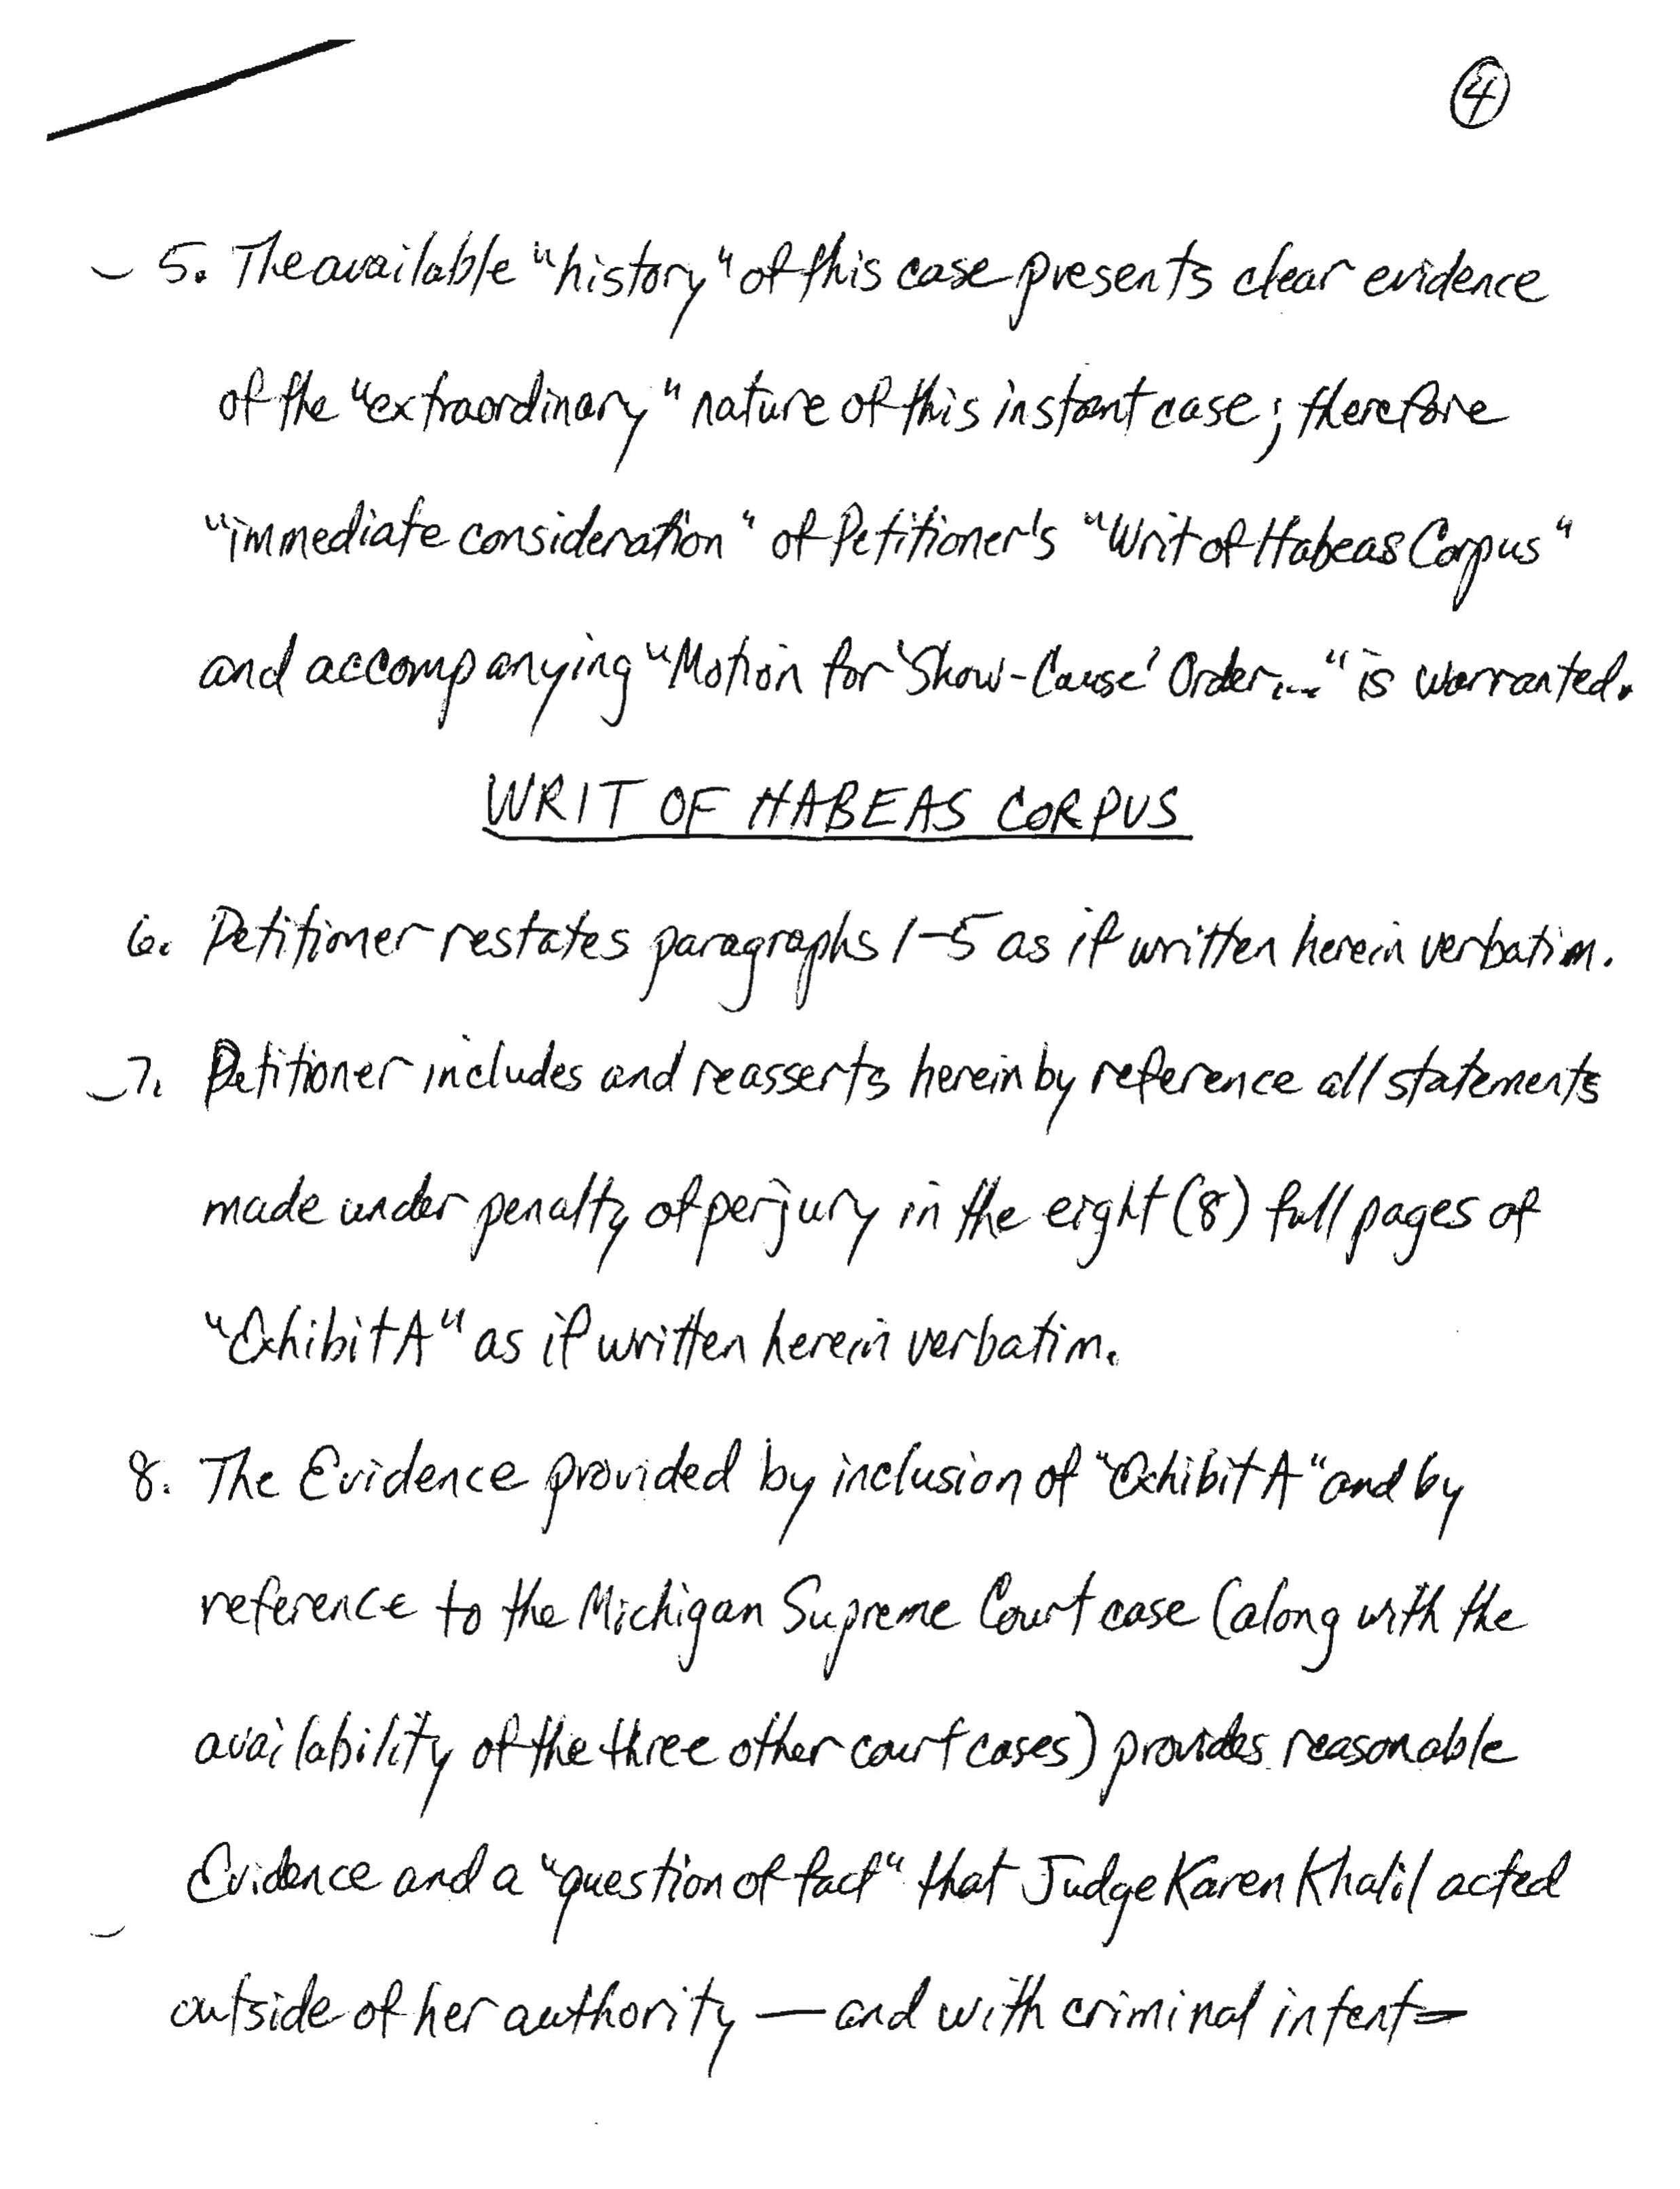 4
5. The available "history" of this case presents clear evidence
of the "extraordinary" nature of this instant case; therefore
"immediate consideration" of Petitioner's "Writ of Habeas Corpus"
and accompanying "Motion for 'Show-Cause' Order..." is warranted.
WRIT OF HABEAS CORPUS
6. Petitioner restates paragraphs 1-5 as if written herein verbatim.
7. Petitioner includes and reasserts herein by reference all statements
made under penalty of perjury in the eight (8) full pages of
"Exhibit A" as if written herein verbatim.
8. The Evidence provided by inclusion of "Exhibit A" and by
reference to the Michigan Supreme Court case (along with the
availability of the three other court cases) provides reasonable
Evidence and a "question of fact" that Judge Karen Khalil acted
outside of her authority — and with criminal intent —